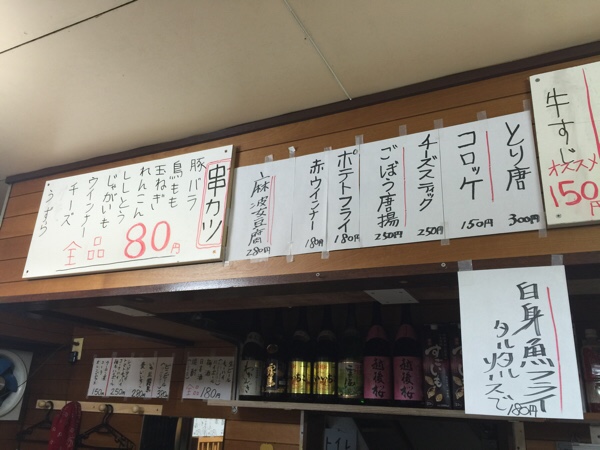 串カツ
豚バラ
鳥もも
玉ねぎ
れんこん
ししとう
じゃがいも
ウインナー
チーズ
うずら
全品 80円
牛すじ
オススメ
150円
とり唐
300円
コロッケ
150円
チーズスティック
250円
ごぼう唐揚
250円
ポテトフライ
180円
赤ウインナー
180円
麻婆豆腐
280円
白身魚フライ
タルタル
ソースで
180円
越後桜
越後桜
180円